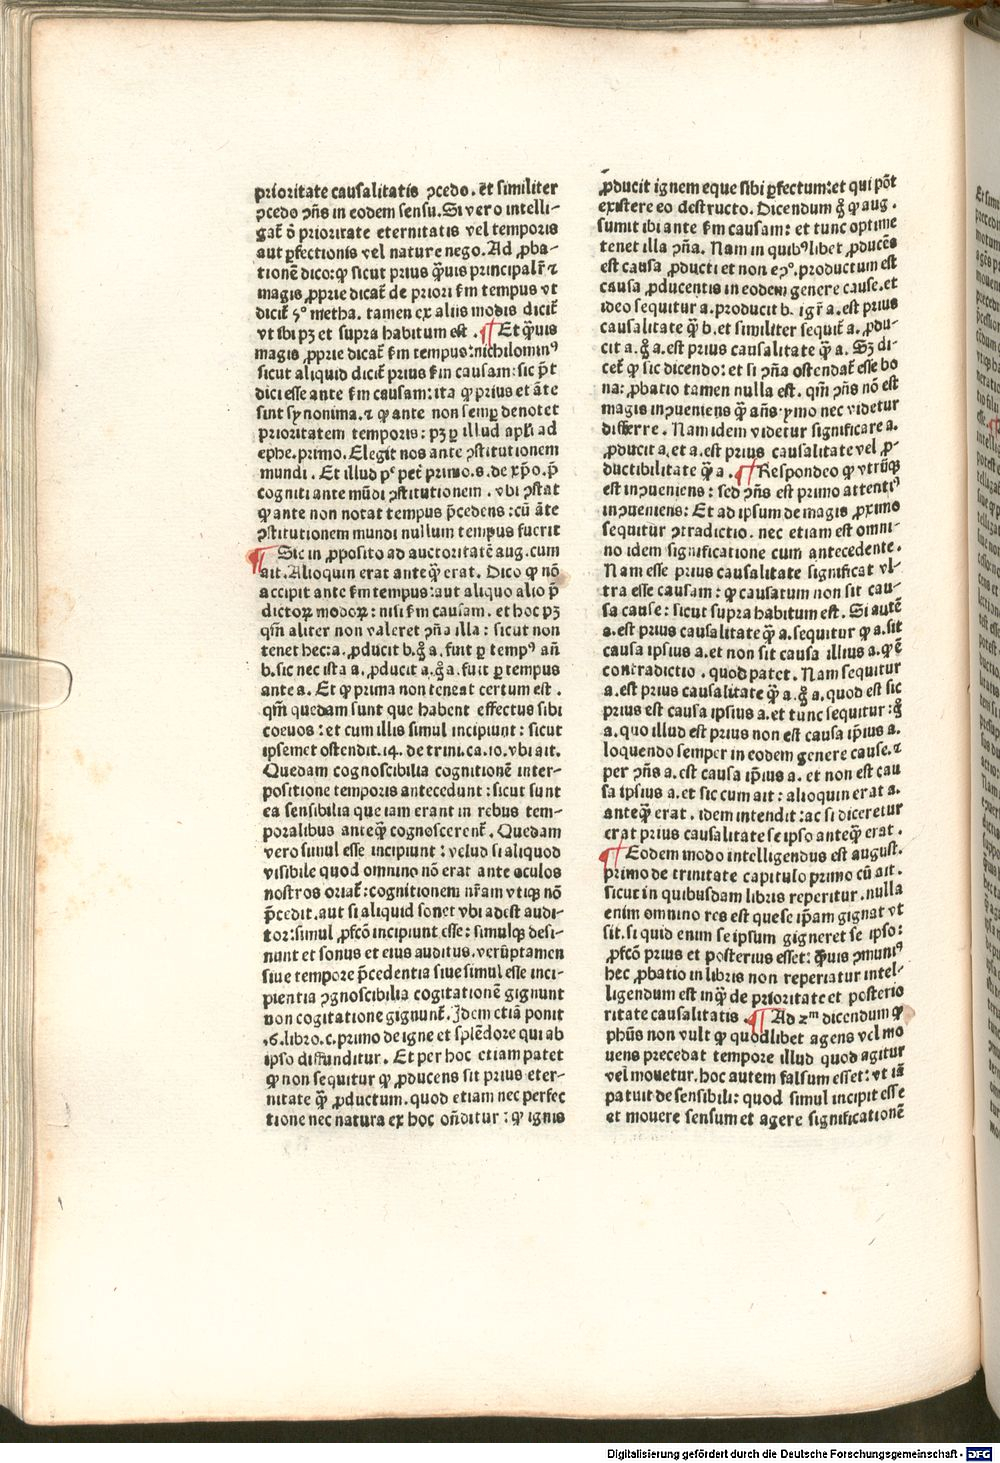 prioritate causalitatis ꝯcedo. et̃ similiter
ꝯcedo ꝯñs in eodem sensu. Si vero intelli-
gat̃ ð prioritate eternitatis vel temporis
aut ꝑfectionis vel nature nego. Ad ꝓba-
tionẽ dico: ꝙ sicut prius q̃uis principalr̃ ⁊
magis ꝓprie dicat̃ de priori ẜm tempus vt
dicit̃ 5º metha. tamen ex aliis modis dicit̃
vt ibi pꝫ et supra habitum est. ¶ Et q̃uis
magis ꝓprie dicat̃ ẜm tempus: nichilominꝰ
sicut aliquid dicit̃ prius ẜm causam: sic p̃t
dici esse ante ẜm causam: ita ꝙ prius et ãte
sint synonima. ⁊ ꝙ ante non semꝑ denotet
prioritatem temporis: pꝫ ꝑ illud apl̃i ad
ephe. primo. Elegit nos ante ꝯstitutionem
mundi. Et illud pͥ pet̃ primo. s. de xp̃o. p̃
cogniti ante mũdi ꝯstitutionem. vbi ꝯstat
ꝙ ante non notat tempus p̃cedens: cũ ãte
ꝯstitutionem mundi nullum tempus fuerit
¶ Sic in ꝓposito ad auctoritatẽ aug. cum
ait. Alioquin erat anteq̃ erat. Dico ꝙ nõ
accipit ante ẜm tempus: aut aliquo alio p̃
dictoꝝ modoꝝ: nisi ẜm causam. et hoc pꝫ
qm̃ aliter non valeret ꝯña illa: sicut non
tenet hec: a. ꝓducit b. g̊ a. fuit ꝑ tempꝰ añ
b. sic nec ista a. ꝓducit a. g̊ a. fuit ꝑ tempus
ante a. Et ꝙ prima non teneat certum est.
qm̃ quedam sunt que habent effectus sibi
coeuos: et cum illis simul incipiunt: sicut
ipsemet ostendit. 14. de trini. ca. 10. vbi ait.
Quedam cognoscibilia cognitionẽ inter-
positione temporis antecedunt: sicut sunt
ea sensibilia que iam erant in rebus tem-
poralibus anteq̃ cognoscerent̃. Quedam
vero simul esse incipiunt: velud si aliquod
visibile quod omnino nõ erat ante oculos
nostros oriat̃: cognitionem nr̃am vtiqꝫ nõ
p̃cedit. aut si aliquid sonet vbi adest audi-
tor: simul ꝓfcõ incipiunt esse: simulqꝫ desi-
nunt et sonus et eius auditus. verũptamen
siue tempore p̃cedentia siue simul esse inci-
pientia ꝯgnoscibilia cogitationẽ gignunt
non cogitatione gignunt̃. Idem etiã ponit
.6. libro. c. primo de igne et splẽdore qui ab
ipso diffunditur. Et per hoc etiam patet
ꝙ non sequitur ꝙ ꝓducens sit prius eter-
nitate q̃ ꝓductum. quod etiam nec perfec
tione nec natura ex hoc oñditur: ꝙ ignis
ꝓducit ignem eque sibi ꝑfectum: et qui põt
existere eo destructo. Dicendum g̊ ꝙ aug.
sumit ibi ante ẜm causam: et tunc optime
tenet illa ꝯña. Nam in quibꝰlibet ꝓducẽs
est causa ꝓducti et non eꝯº. productum est
causa ꝓducentis in eodem genere cause. et
ideo sequitur a. producit b. igr̃ a. est prius
causalitate q̃ b. et similiter sequit̃ a. ꝓdu-
cit a. g̊ a. est prius causalitate q̃ a. Sꝫ di-
cet̃ ꝙ sic dicendo: et si ꝯña ostendat̃ esse bo
na: ꝓbatio tamen nulla est. qm̃ ꝯñs nõ est
magis inꝯueniens q̃ añs. ymo nec videtur
differre. Nam idem videtur significare a.
ꝓducit a. et a. est prius causalitate vel ꝓ-
ductibilitate q̃ a. ¶ Respondeo ꝙ vtrũqꝫ
est inꝯueniens: sed ꝯñs est primo attentiꝰ
inꝯueniens: Et ad ipsum de magis ꝓximo
sequitur ꝯtradictio. nec etiam est omni-
no idem significatione cum antecedente.
Nam esse prius causalitate significat vl-
tra esse causam: ꝙ causatum non sit cau-
sa cause: sicut supra habitum est. Si autẽ
a. est prius causalitate q̃ a. sequitur ꝙ a. sit
causa ipsius a. et non sit causa illius a. ꝙ ẽ
contradictio. quod patet. Nam sequitur
a. est prius causalitate q̃ a. g̊ a. quod est sic
prius est causa ipsius a. et tunc sequitur: g̊
a. quo illud est prius non est causa ip̃ius a.
loquendo semper in eodem genere cause. ⁊
per ꝯñs a. est causa ip̃ius a. et non est cau
sa ipsius a. et sic cum ait: alioquin erat a.
anteq̃ erat. idem intendit: ac si diceretur
erat prius causalitate se ipso anteq̃ erat.
¶ Eodem modo intelligendus est august.
primo de trinitate capitulo primo cũ ait.
sicut in quibusdam libris reperitur. nulla
enim omnino res est que se ip̃am gignat vt
sit. si quid enim se ipsum gigneret se ipso:
ꝓfcõ prius et posterius esset: q̃uis ꝯmuniꝰ
hec ꝓbatio in libris non reperiatur intel-
ligendum est inq̃ de prioritate et posterio
ritate causalitatis. ¶ Ad 2ᵐ dicendum ꝙ
phũs non vult ꝙ quodlibet agens vel mo
uens precedat tempore illud quod agitur
vel mouetur. hoc autem falsum esset: vt iã
patuit de sensibili: quod simul incipit esse
et mouere sensum et agere significationẽ
Digitalisierung gefördert durch die Deutsche Forschungsgemeinschaft - DFG